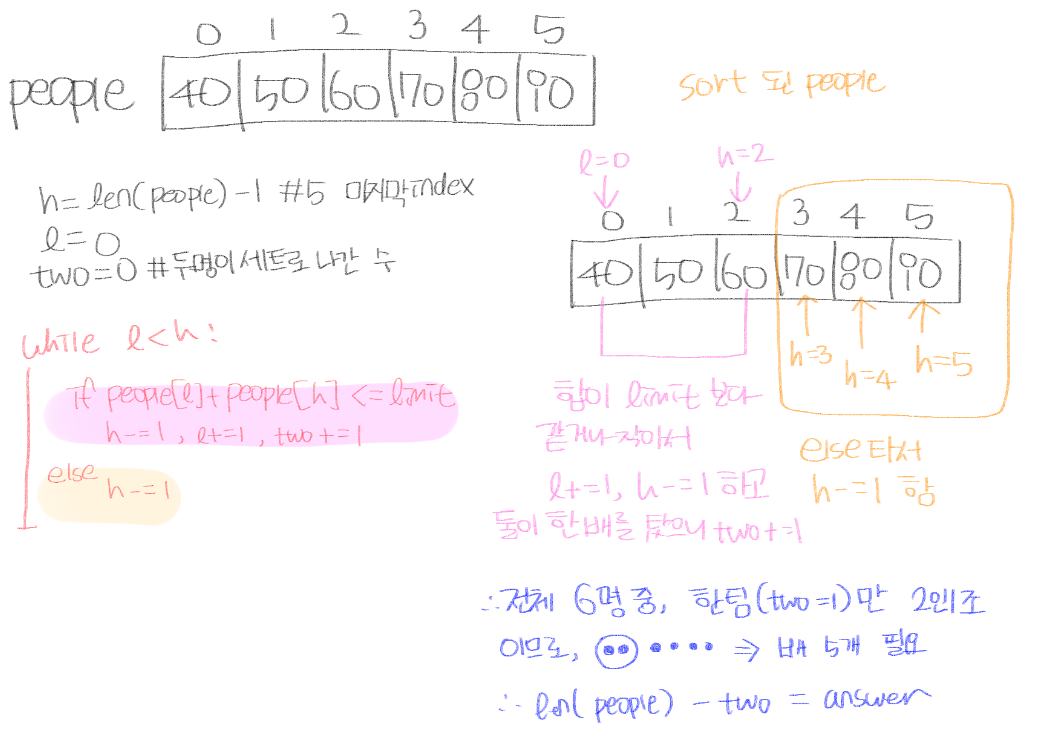 0 1 2 3 4 5
people 40 50 60 70 80 90
sort 된 people
h=len(people)-1 #5 마지막index
l=0
two=0 #두명이 세트로 나간 수
while l<h:
if people[l]+people[h]<=limit
h-=1, l+=1, two+=1
else
h-=1
l=0 h=2
0 1 2 3 4 5
40 50 60 70 80 90
h=3 h=4 h=5
합이 limit 보다
같거나 작아서
l+=1, h-=1 하고
둘이 한배를 탔으니 two+=1
else 타서
h-=1 함
∴전체 6명 중, 한팀(two=1)만 2인조
이므로, ⇒ 배 5개 필요
∴ len(people) - two = answer